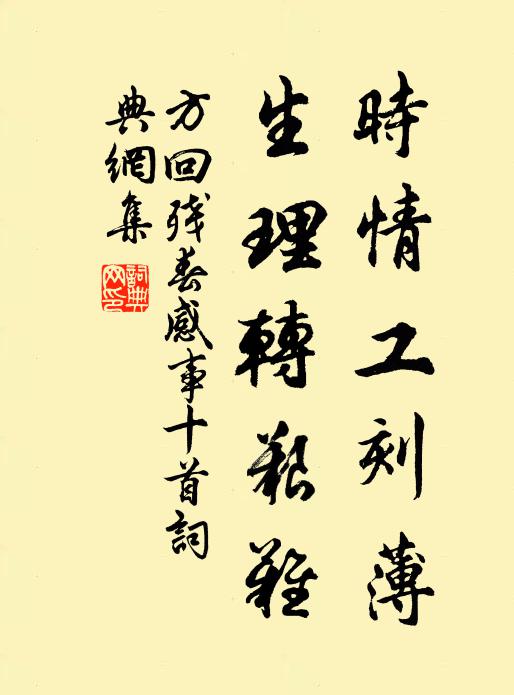 時情工刻薄
生理轉艱難
方回残春感事十首詞
典網集
詞典網印